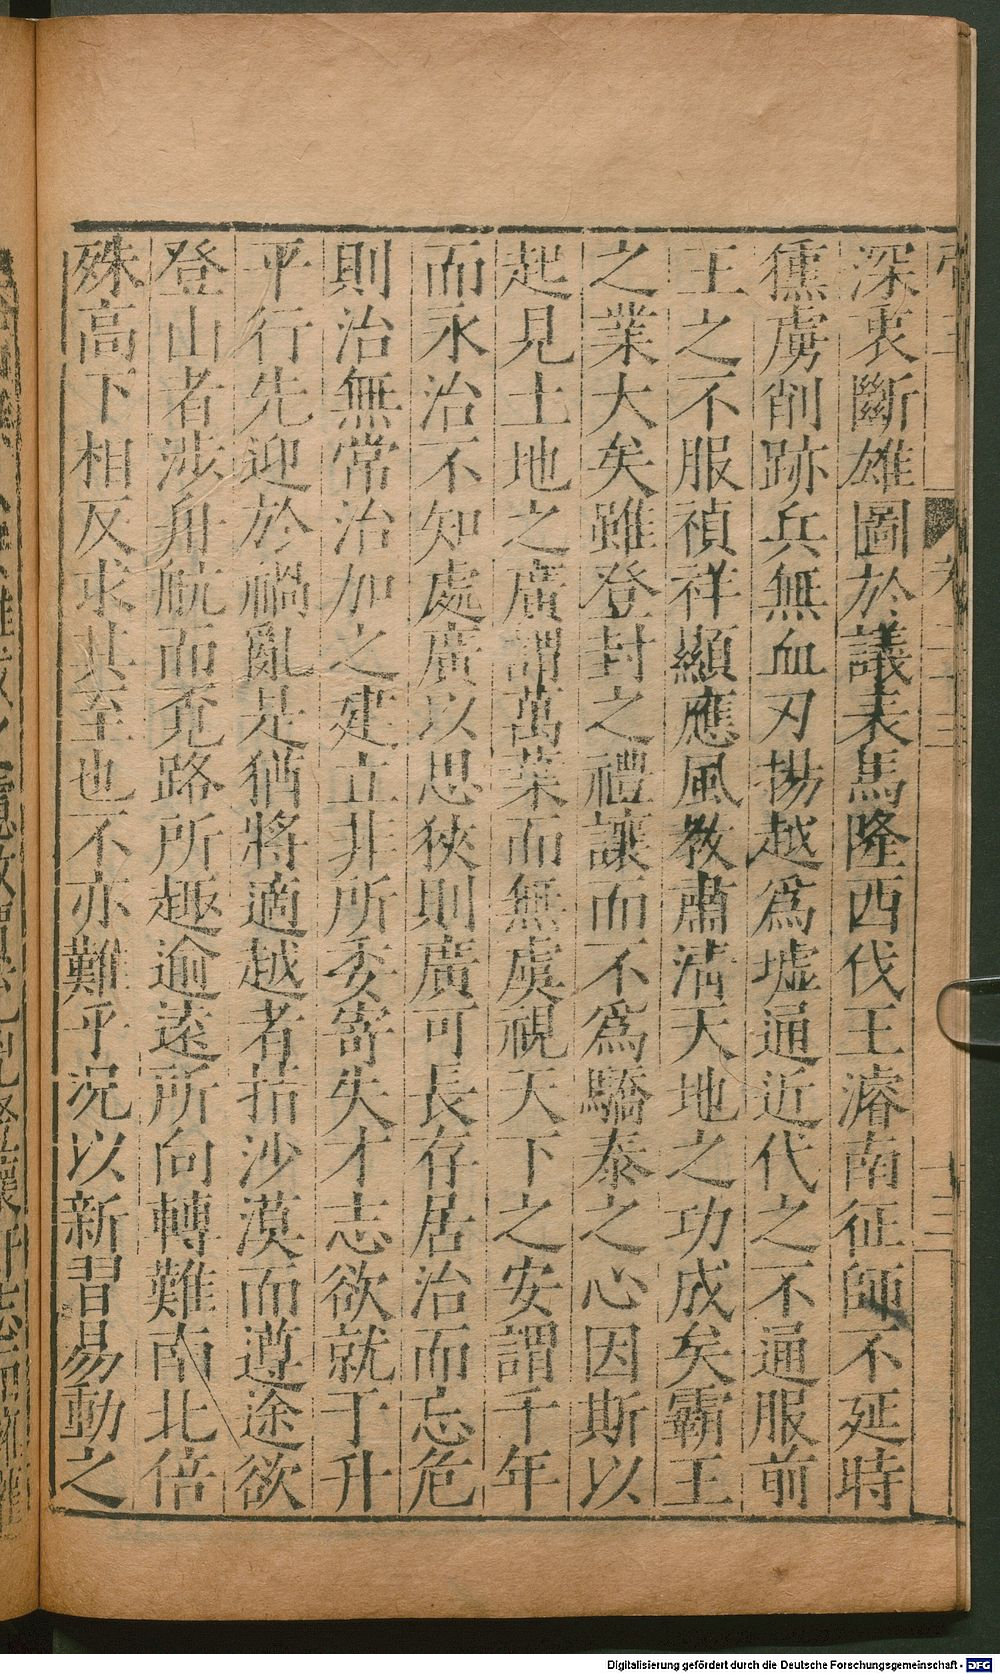 深衷斷雄圖於議表馬隆西伐王濬南征師不延時
獯虜削跡兵無血刃揚越爲墟通近代之不通服前
王之不服禎祥顯應風敎肅淸天地之功成矣霸王
之業大矣雖登封之禮讓而不爲驕泰之心因斯以
起見土地之廣謂萬葉而無虞視天下之安謂千年
而永治不知處廣以思狹則廣可長存居治而忘危
則治無常治加之建立非所委寄失才志欲就于升
平行先迎於禍亂是猶將適越者指沙漠而遵途欲
登山者涉舟航而覓路所趣逾遠所向轉難南北倍
殊高下相反求其至也不亦難乎况以新習易動之
十三
Digitalisierung gefördert durch die Deutsche Forschungsgemeinschaft - DFG